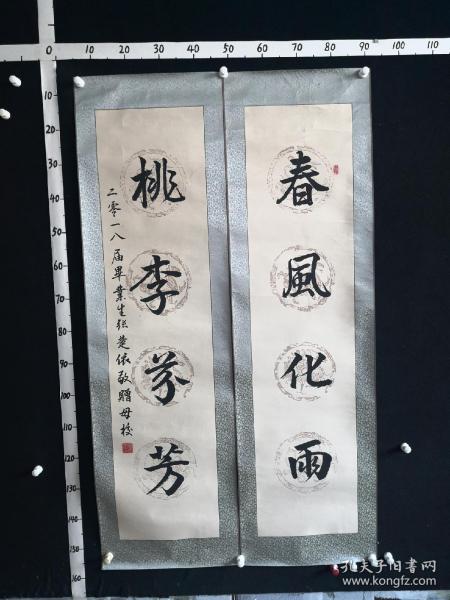 春風化雨
桃李芬芳
二零一八届畢業生張楚依敬贈母校
0 10 20 30 40 50 60 70 80 90 100 110
10
20
30
40
50
60
70
80
90
100
110
120
130
140
150
160
孔夫子旧书网
www.kongfz.com